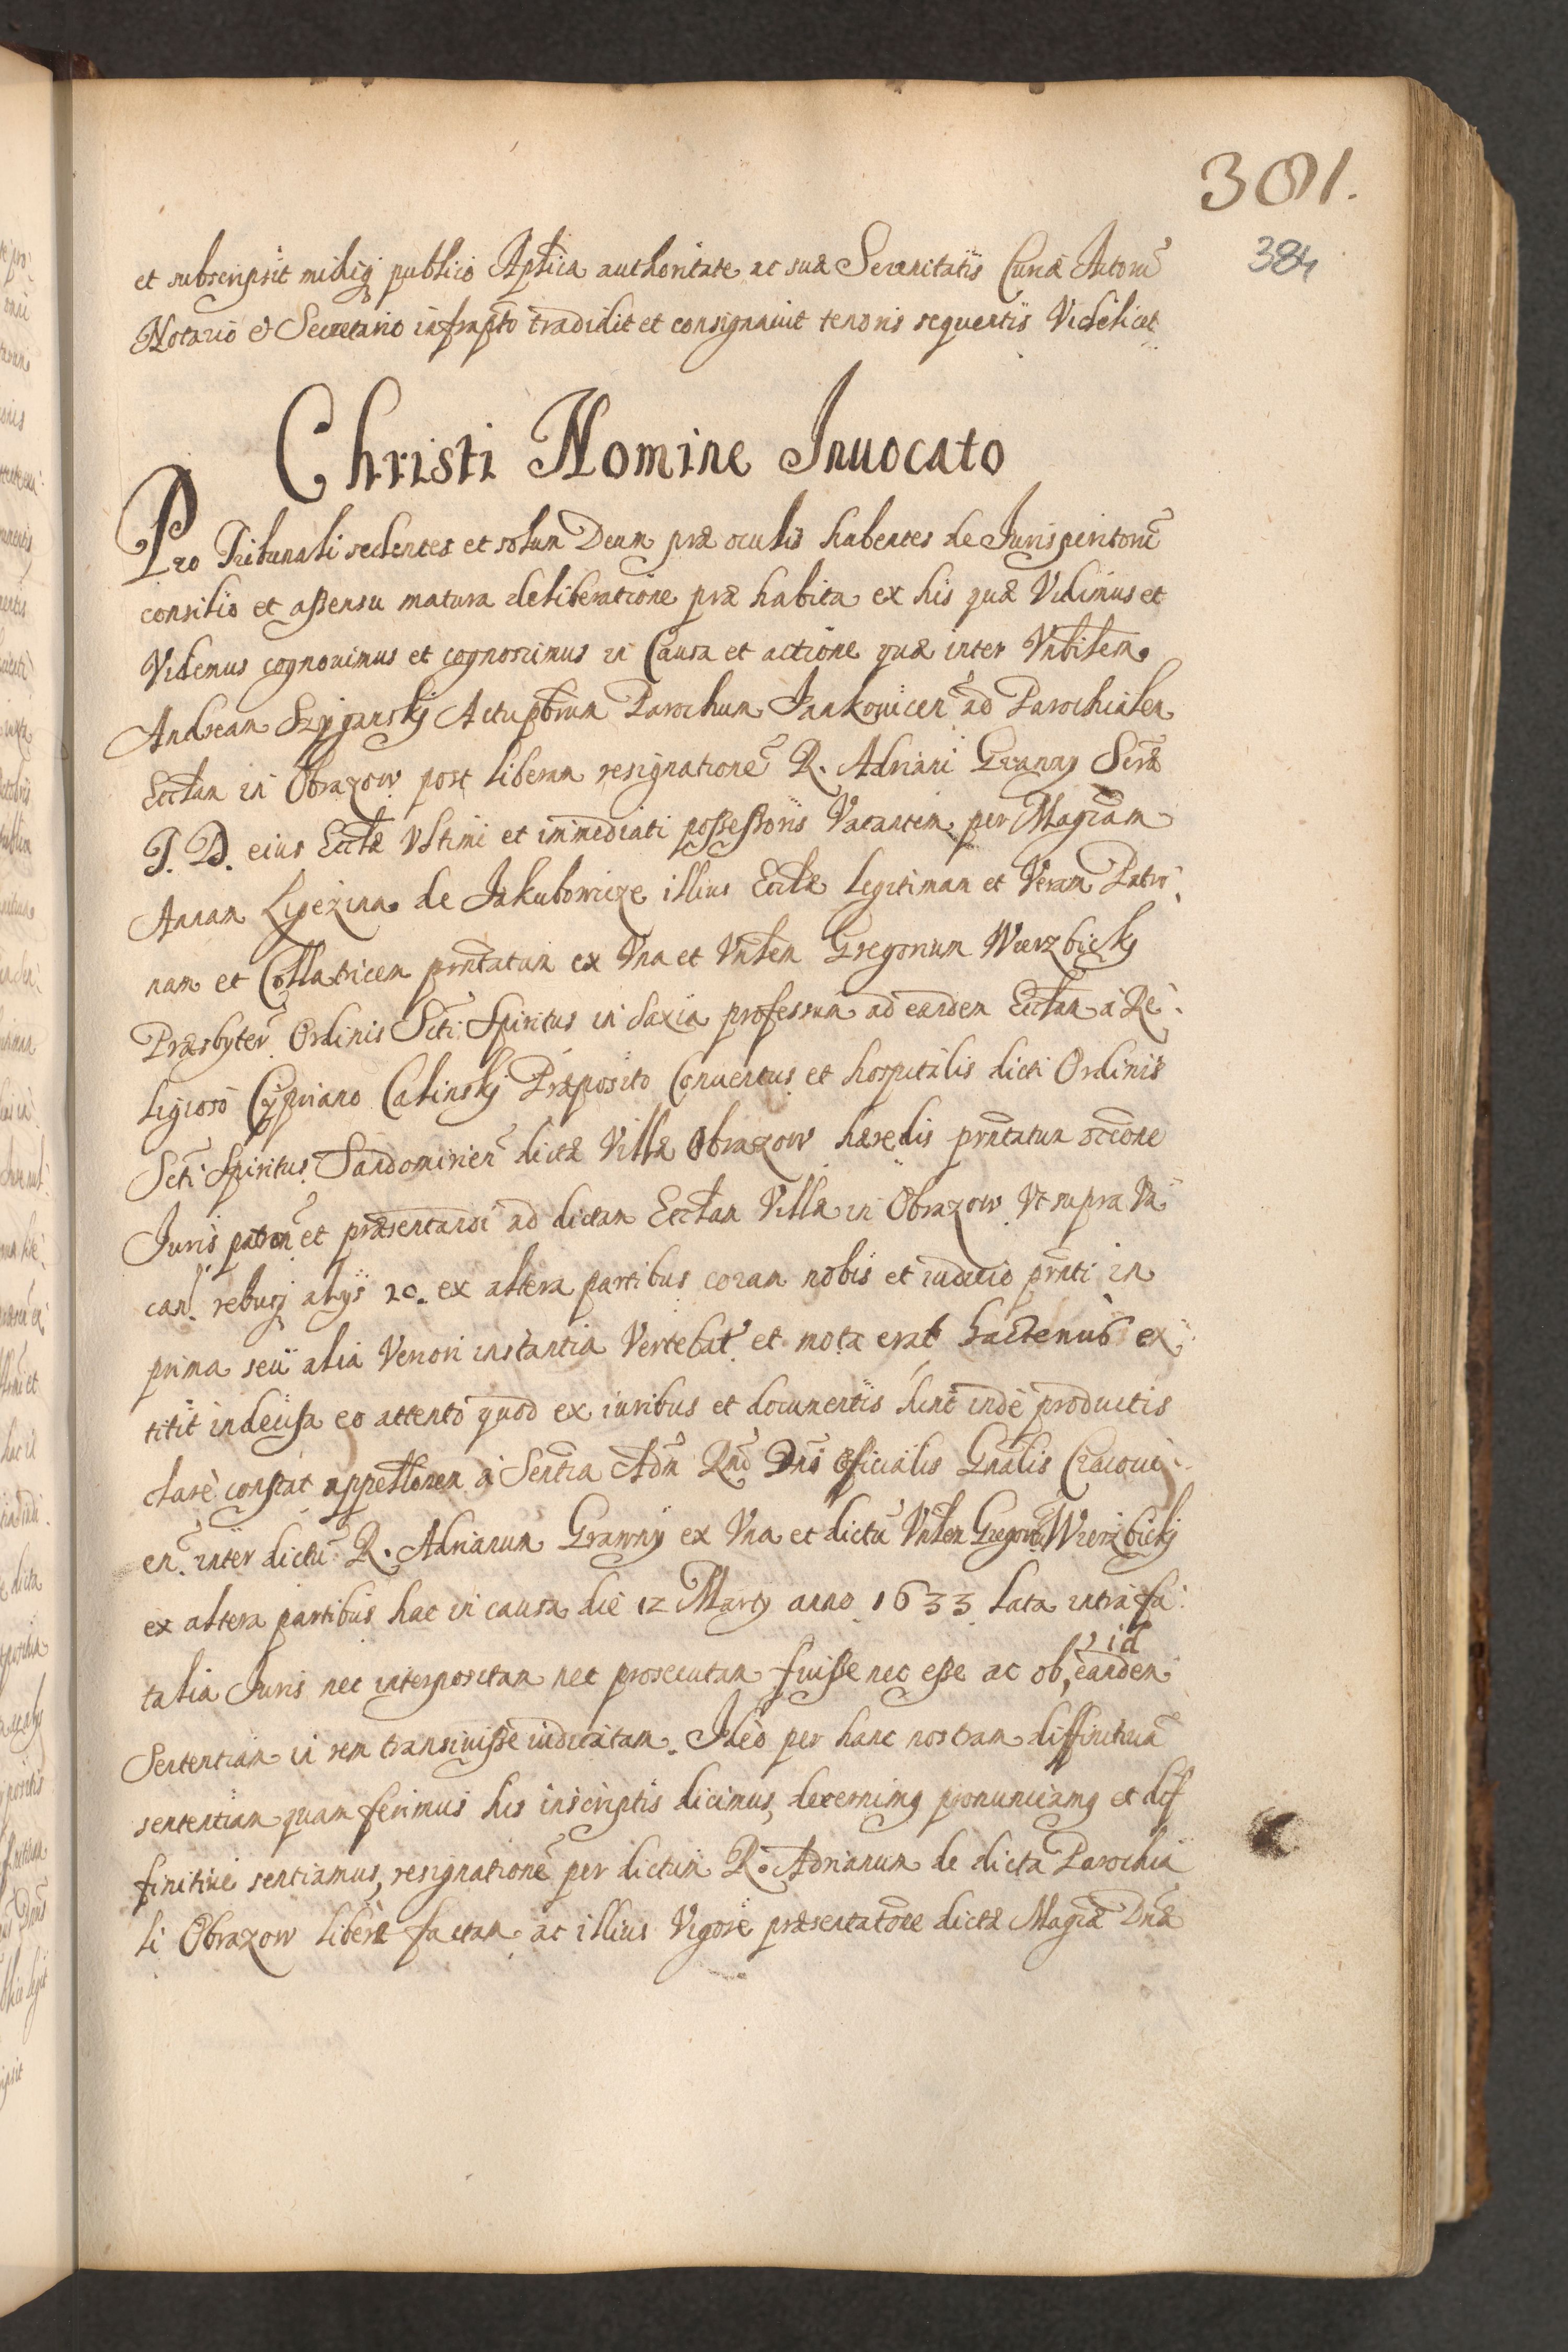 381.
384
et subscripsit mihiq publico Aplica authoritate ac suæ Serenitatis Curiæ Actorũ
Notario & Secretario infrapto tradidit et consignauit tenoris sequentis Videlicet
Christi Nomine Inuocato
Pro Tribunali sedentes et solum Deum præ oculis habentes de Jurisperitorũ
consilio et assensu matura deliberatione præ habita ex his quæ Vidimus et
Videmus cognouimus et cognoscimus in Causa et actione quæ inter Vnbilem
Andream Actu pbrum Parochum Jankouicen ad Parochialem
Ecclam in Obrazow post liberam resignationẽ R. Adriani Grawny Scræ
T. D. eius Ecclæ Vltimi et immediati possessoris Vacantem per Magcam
Annam Ligezina de Jakubowicze illius Ecclæ legitimam et Veram Patro
nam et Collatricem prntatum ex Vna et Vnlem Gregorium Wierzbicky
Præsbyterũ Ordinis Scti Spiritus in Saxia professum ad eandem Ecclam à Re
ligioso Cypriano Calinskj Præposito Conuentus et hospitalis dicti Ordinis
Scti Spiritus Sandomirien dictæ Villæ Obrazow hæredis prntatum
Juris patron et præsentandi ad dictam Ecclam Villæ in Obrazow Vt supra Va
can rebusq alijs 2c. ex altera partibus coram nobis et iudicio prnti in
prima seu alia Veriori instantia Vertebat et mota erat hactenus ex
titit indecisa eo attento quod ex iuribus et documentis hinc inde productis
clarè constat appellonem à Sentia Adm Rnd Dni Officialis Gnalis Cracoui
en. inter dictũ R. Adrianum Grawny ex Vna et dictũ Vnlem Gregoriũ Wierzbickj
ex altera partibus hac in causa die 12 Martij anno 1633 lata intra fa
talia Juris nec interpositam nec prosecutam fuisse nec esse ac ob id eandem
Sententiam in rem transiuisse iudicatam. Ideò per hanc nostram diffinitiuã
sententiam quam ferimus his inscriptis dicimus, decernimq pronunciamq et dif
finitiuè sentiamus, resignationẽ per dictum R. Adrianum de dicta Parochia
li Obrazow liberè factam ac illius Vigore præsentatone dictæ Magcæ Dnæ